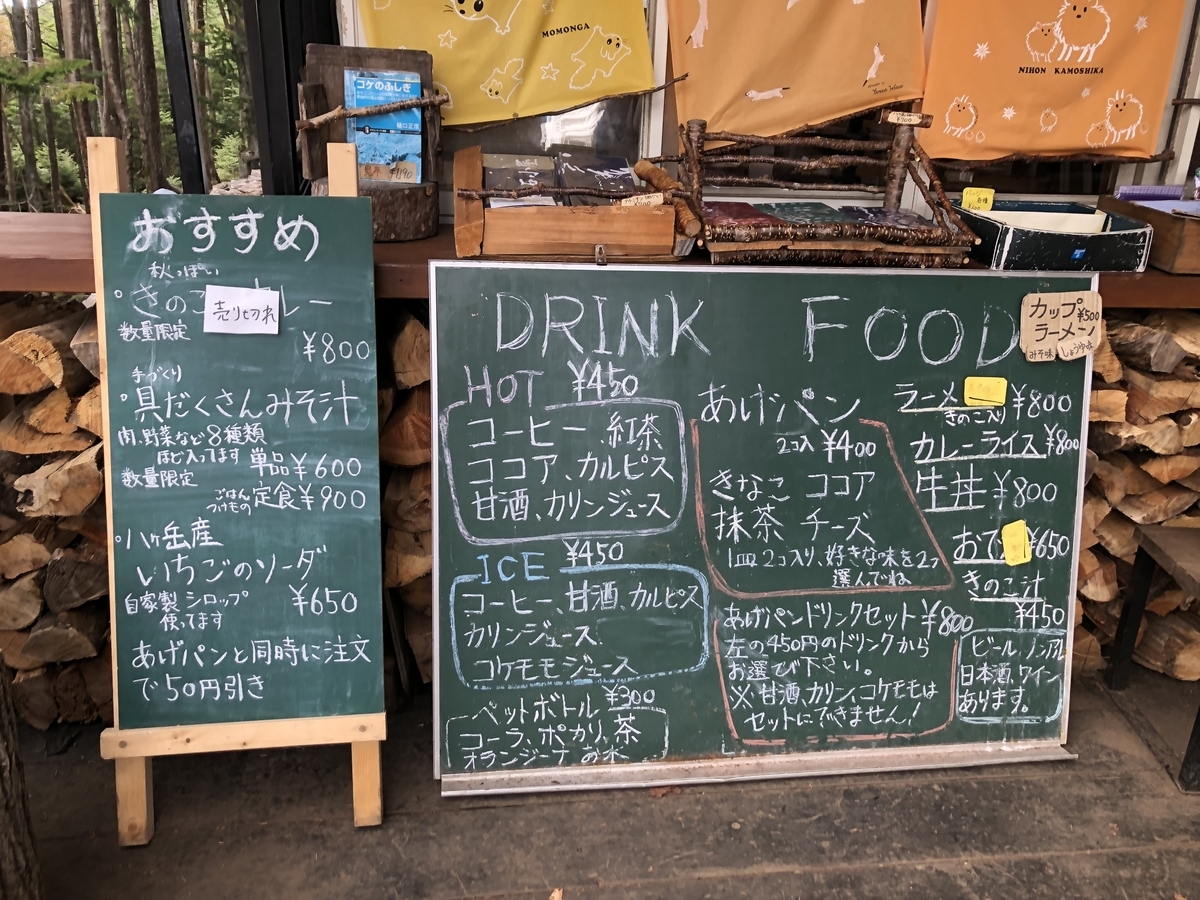 MOMONGA
NIHON KAMOSHIKA
コケのふしぎ
樋口正信
¥1190
おすすめ
秋っぽい
きのこ
レー
売り切れ
数量限定
¥800
手づくり
具だくさんみそ汁
肉、野菜など8種類
ほど入ってます 単品¥600
数量限定
ごはん
つけもの 定食¥900
八ヶ岳産
いちごのソーダ
自家製シロップ
使ってます
¥650
あげパンと同時に注文
で50円引き
DRINK
HOT ¥450
コーヒー、紅茶
ココア、カルピス
甘酒、カリンジュース
ICE ¥450
コーヒー、甘酒、カルピス
カリンジュース
コケモモジュース
ペットボトル ¥300
コーラ、ポカリ、茶
オランジーナ お水
FOOD
カップ ¥500
ラーメン
みそ味 しょうゆ味
あげパン
2コ入 ¥400
きなこ ココア
抹茶 チーズ
1皿2コ入り、好きな味を2つ
選んでね
あげパンドリンクセット¥800
左の450円のドリンクから
お選び下さい。
※甘酒、カリン、コケモモは
セットにできません!
ラーメ
きのこ入り ¥800
カレーライス¥800
牛丼¥800
おで ¥650
きのこ汁
¥450
ビール ノンアル
日本酒、ワイン
あります。